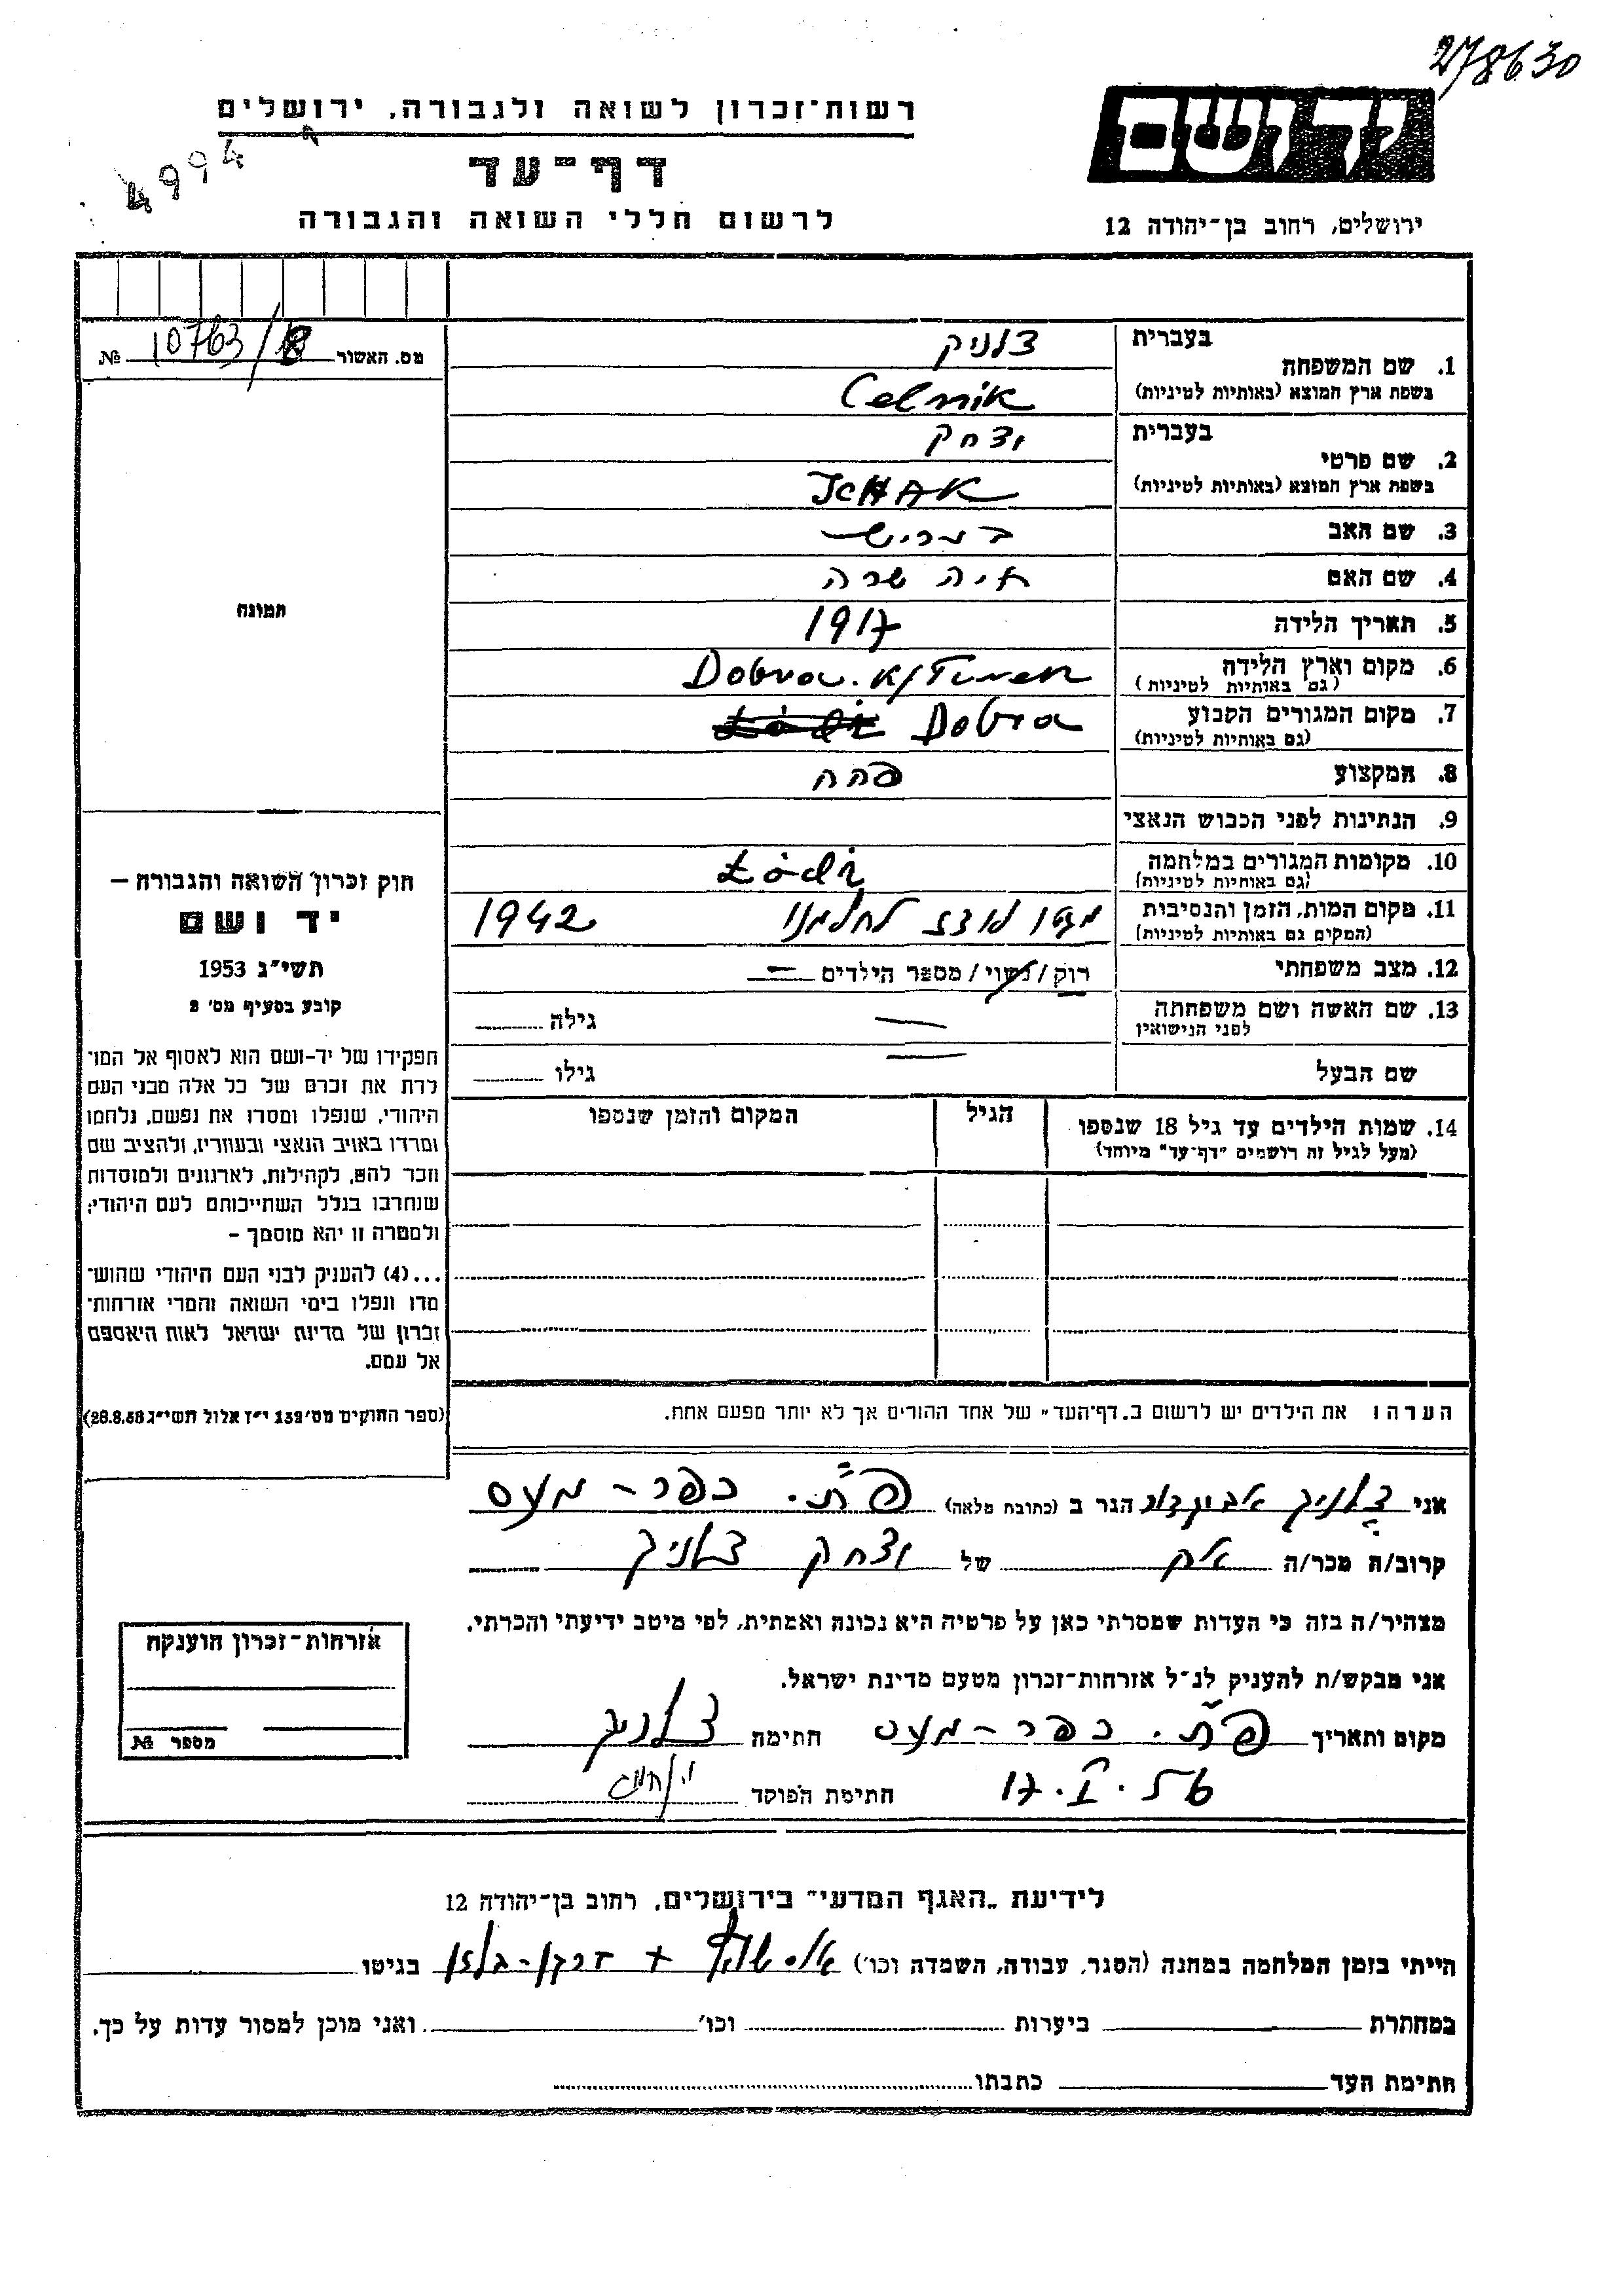 278630
רשות־זכרון לשואה ולגבורה, ירושלים
4994
דף־עד
לרשום חללי השואה והגבורה
יד ושם
ירושלים, רחוב בן־יהודה 12
מס. האשור 10763/ №
בעברית
1. שם המשפחה צלניק
בשפת ארץ המוצא (באותיות לטיניות) Celnik
בעברית
2. שם פרטי יצחק
בשפת ארץ המוצא (באותיות לטיניות) ICHAK
3. שם האב
4. שם האם חיה שרה
5. תאריך הלידה 1917
6. מקום וארץ הלידה Dobra. K/Turek
(גם באותיות לטיניות)
7. מקום המגורים הקבוע Dobra Łódź
(גם באותיות לטיניות)
8. המקצוע פחח
9. הנתינות לפני הכבוש הנאצי
10. מקומות המגורים במלחמה Łódź
(גם באותיות לטיניות)
11. מקום המות, הזמן והנסיבות מגטו לודז לחלמנו 1942
(המקום גם באותיות לטיניות)
12. מצב משפחתי רוק / נשוי / מספר הילדים —
13. שם האשה ושם משפחתה — גילה
לפני הנישואין
שם הבעל — גילו
14. שמות הילדים עד גיל 18 שנספו הגיל המקום והזמן שנספו
(מעל לגיל זה רושמים "דף־עד" מיוחד)
הערה: את הילדים יש לרשום ב„דף־העד" של אחד ההורים אך לא יותר מפעם אחת.
תמונה
חוק זכרון השואה והגבורה —
יד ושם
תשי"ג 1953
קובע בסעיף מס' 2
תפקידו של יד-ושם הוא לאסוף אל המו־
לדת את זכרם של כל אלה מבני העם
היהודי, שנפלו ומסרו את נפשם, נלחמו
ומרדו באויב הנאצי ובעוזריו, ולהציב שם
וזכר להם, לקהילות, לארגונים ולמוסדות
שנחרבו בגלל השתייכותם לעם היהודי;
ולמטרה זו יהא מוסמך –
...(4) להעניק לבני העם היהודי שהוש־
מדו ונפלו בימי השואה והמרי אזרחות־
זכרון של מדינת ישראל לאות היאספם
אל עמם.
(ספר החוקים מס' 132 י"ז אלול תשי"ג 28.8.53)
אני צלניק הגר ב (כתובת מלאה) פ"ת. כפר-מעס
קרוב/ה מכר/ה אח של יצחק צלניק
מצהיר/ה בזה כי העדות שמסרתי כאן על פרטיה היא נכונה ואמתית, לפי מיטב ידיעתי והכרתי.
אני מבקש/ת להעניק לנ"ל אזרחות־זכרון מטעם מדינת ישראל.
מקום ותאריך פ"ת. כפר-מעס חתימה צלניק
17.I.56 חתימת הפוקד
אזרחות־זכרון הוענקה
מספר №
לידיעת „האגף המדעי" בירושלים, רחוב בן־יהודה 12
הייתי בזמן המלחמה במחנה (הסגר, עבודה, השמדה וכו') + ברגן-בלזן בגיטו
במחתרת ביערות וכו' ואני מוכן למסור עדות על כך.
חתימת העד כתבתו